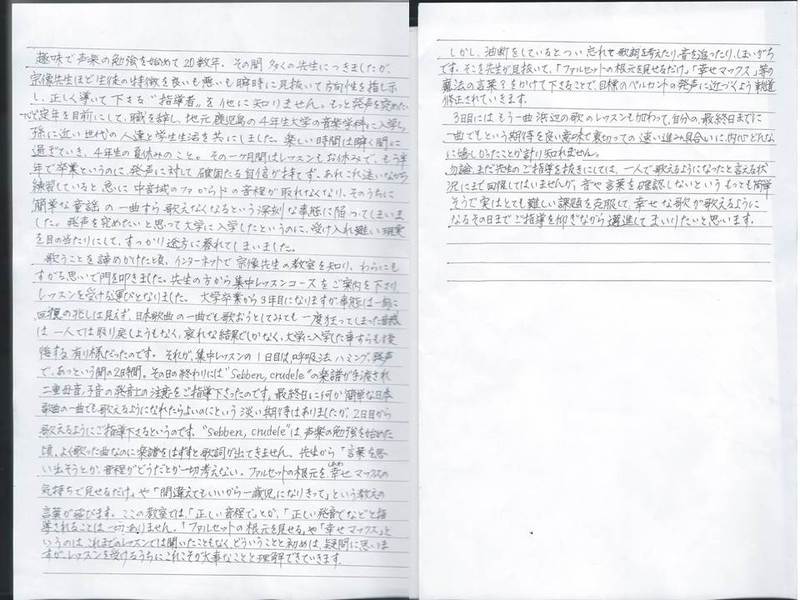 趣味で声楽の勉強を始めて20数年、その間多くの先生につきましたが、
宗像先生ほど生徒の特徴を良いも悪いも瞬時に見抜いて方向性を指し示
し、正しく導いて下さる"指導者"を他に知りません。もっと発声を究めたい
と定年を目前にして、職を辞し、地元鹿児島の4年生大学の音楽学科に入学し
孫に近い世代の人達と学生生活を共にしました。楽しい時間は瞬く間に
過ぎていき、4年生の夏休みのこと。その一ヶ月間はレッスンもお休みで、もう半
年で卒業というのに、発声に対して確固たる自信が持てず、あれこれ迷いながら
練習していると急に中音域のファからドの音程が取れなくなり、そのうちに
簡単な童謡の一曲すら歌えなくなるという深刻な事態に陥ってしまいま
した。発声を究めたいと思って大学に入学したというのに、受け入れ難い現実
を目の当たりにして、すっかり途方に暮れてしまいました。
歌うことを諦めかけた頃、インターネットで宗像先生の教室を知り、わらにも
すがる思いで門を叩きました。先生の方から集中レッスンコースをご案内を下さり
レッスンを受ける運びとなりました。大学卒業から3年目になりますが事態は一向に
回復の兆しは見えず、日本歌曲の一曲でも歌おうとしてみても一度狂ってしまった
は一人では取り戻しようもなく、哀れな結果でしかなく、大学に入学した事すらも後
悔する有り様だったのです。それが、集中レッスンの1日目は、呼吸法、ハミング、発声
で、あっという間の2時間。その日の終わりには"Sebben, crudele"の楽譜が手渡され
二重母音、子音の発音上の注意をご指導下さったのです。最終日に何か簡単な日本
歌曲の一曲でも歌えるようになれたらよいのにという淡い期待はありましたが、2日目から
歌えるようにご指導下さるというのです。"Sebben, crudele"は声楽の勉強を始めた
頃、よく歌った曲なのに楽譜をはずすと歌詞が出てきません。先生から「言葉を思
い出そうとか、音程がどうだとか一切考えない。ファルセットの根元を幸せマックスの
気持ちで見せるだけ。」や「間違えてもいいから一歳児になりきって」という教えの
言葉が飛びます。ここの教室では、「正しい音程で」とか、「正しい発音で」などと指
導されることは一切ありません。「ファルセットの根元を見せる」や「幸せマックス」と
いうのは、これまでのレッスンでは聞いたこともなく、どういうことと初めは、疑問に思いま
すが、レッスンを受けるうちにこれこそが大事なことと理解できていきます。
しかし、油断をしているとつい忘れて歌詞を考えたり、音を追ったりしまいがち
です。そこを先生が見抜いて、「ファルセットの根元を見せるだけ」、「幸せマックス」等の
魔法の言葉?をかけて下さることで、目標のベルカントの発声に近づくよう軌道
修正されていきます。
3日目にはもう一曲浜辺の歌のレッスンも加わって、自分の、最終日までに
一曲でもという期待を良い意味で裏切っての速い進み具合いに、内心どんな
に嬉しかったことか計り知れません。
勿論まだ先生のご指導を抜きにしては、一人で歌えるようになったと言える状
況にまで回復してはいませんが、音や言葉を確認しないというもっとも簡単
そうで実はとても難しい課題を克服して、幸せな歌が歌えるように
なるその日までご指導を仰ぎながら邁進してまいりたいと思います。